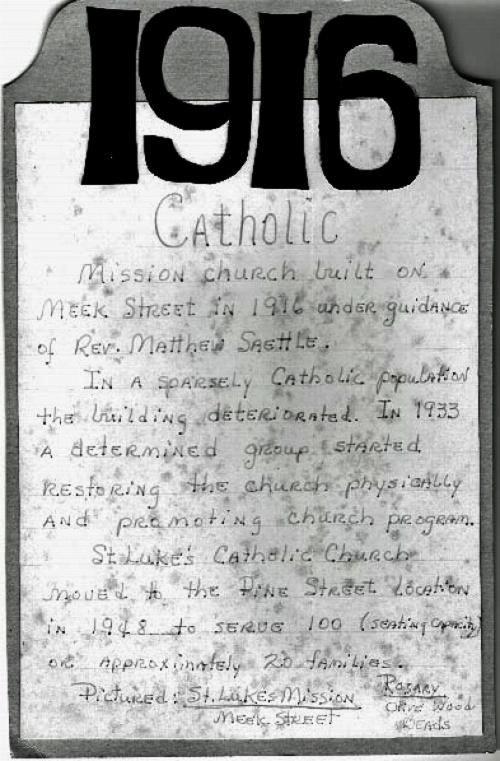 1916
Catholic
Mission church built on
Meek Street in 1916 under guidance
of Rev. Matthew Saettle.
In a sparsely Catholic population
the building deteriorated. In 1933
a determined group started
restoring the church physically
and promoting church program.
St. Luke's Catholic Church
moved to the Pine Street location
in 1948 to serve 100 (seating capacity)
or approximately 20 families.
Pictured: St. Lukes Mission
Meek Street
Rosary
Olive Wood
Beads